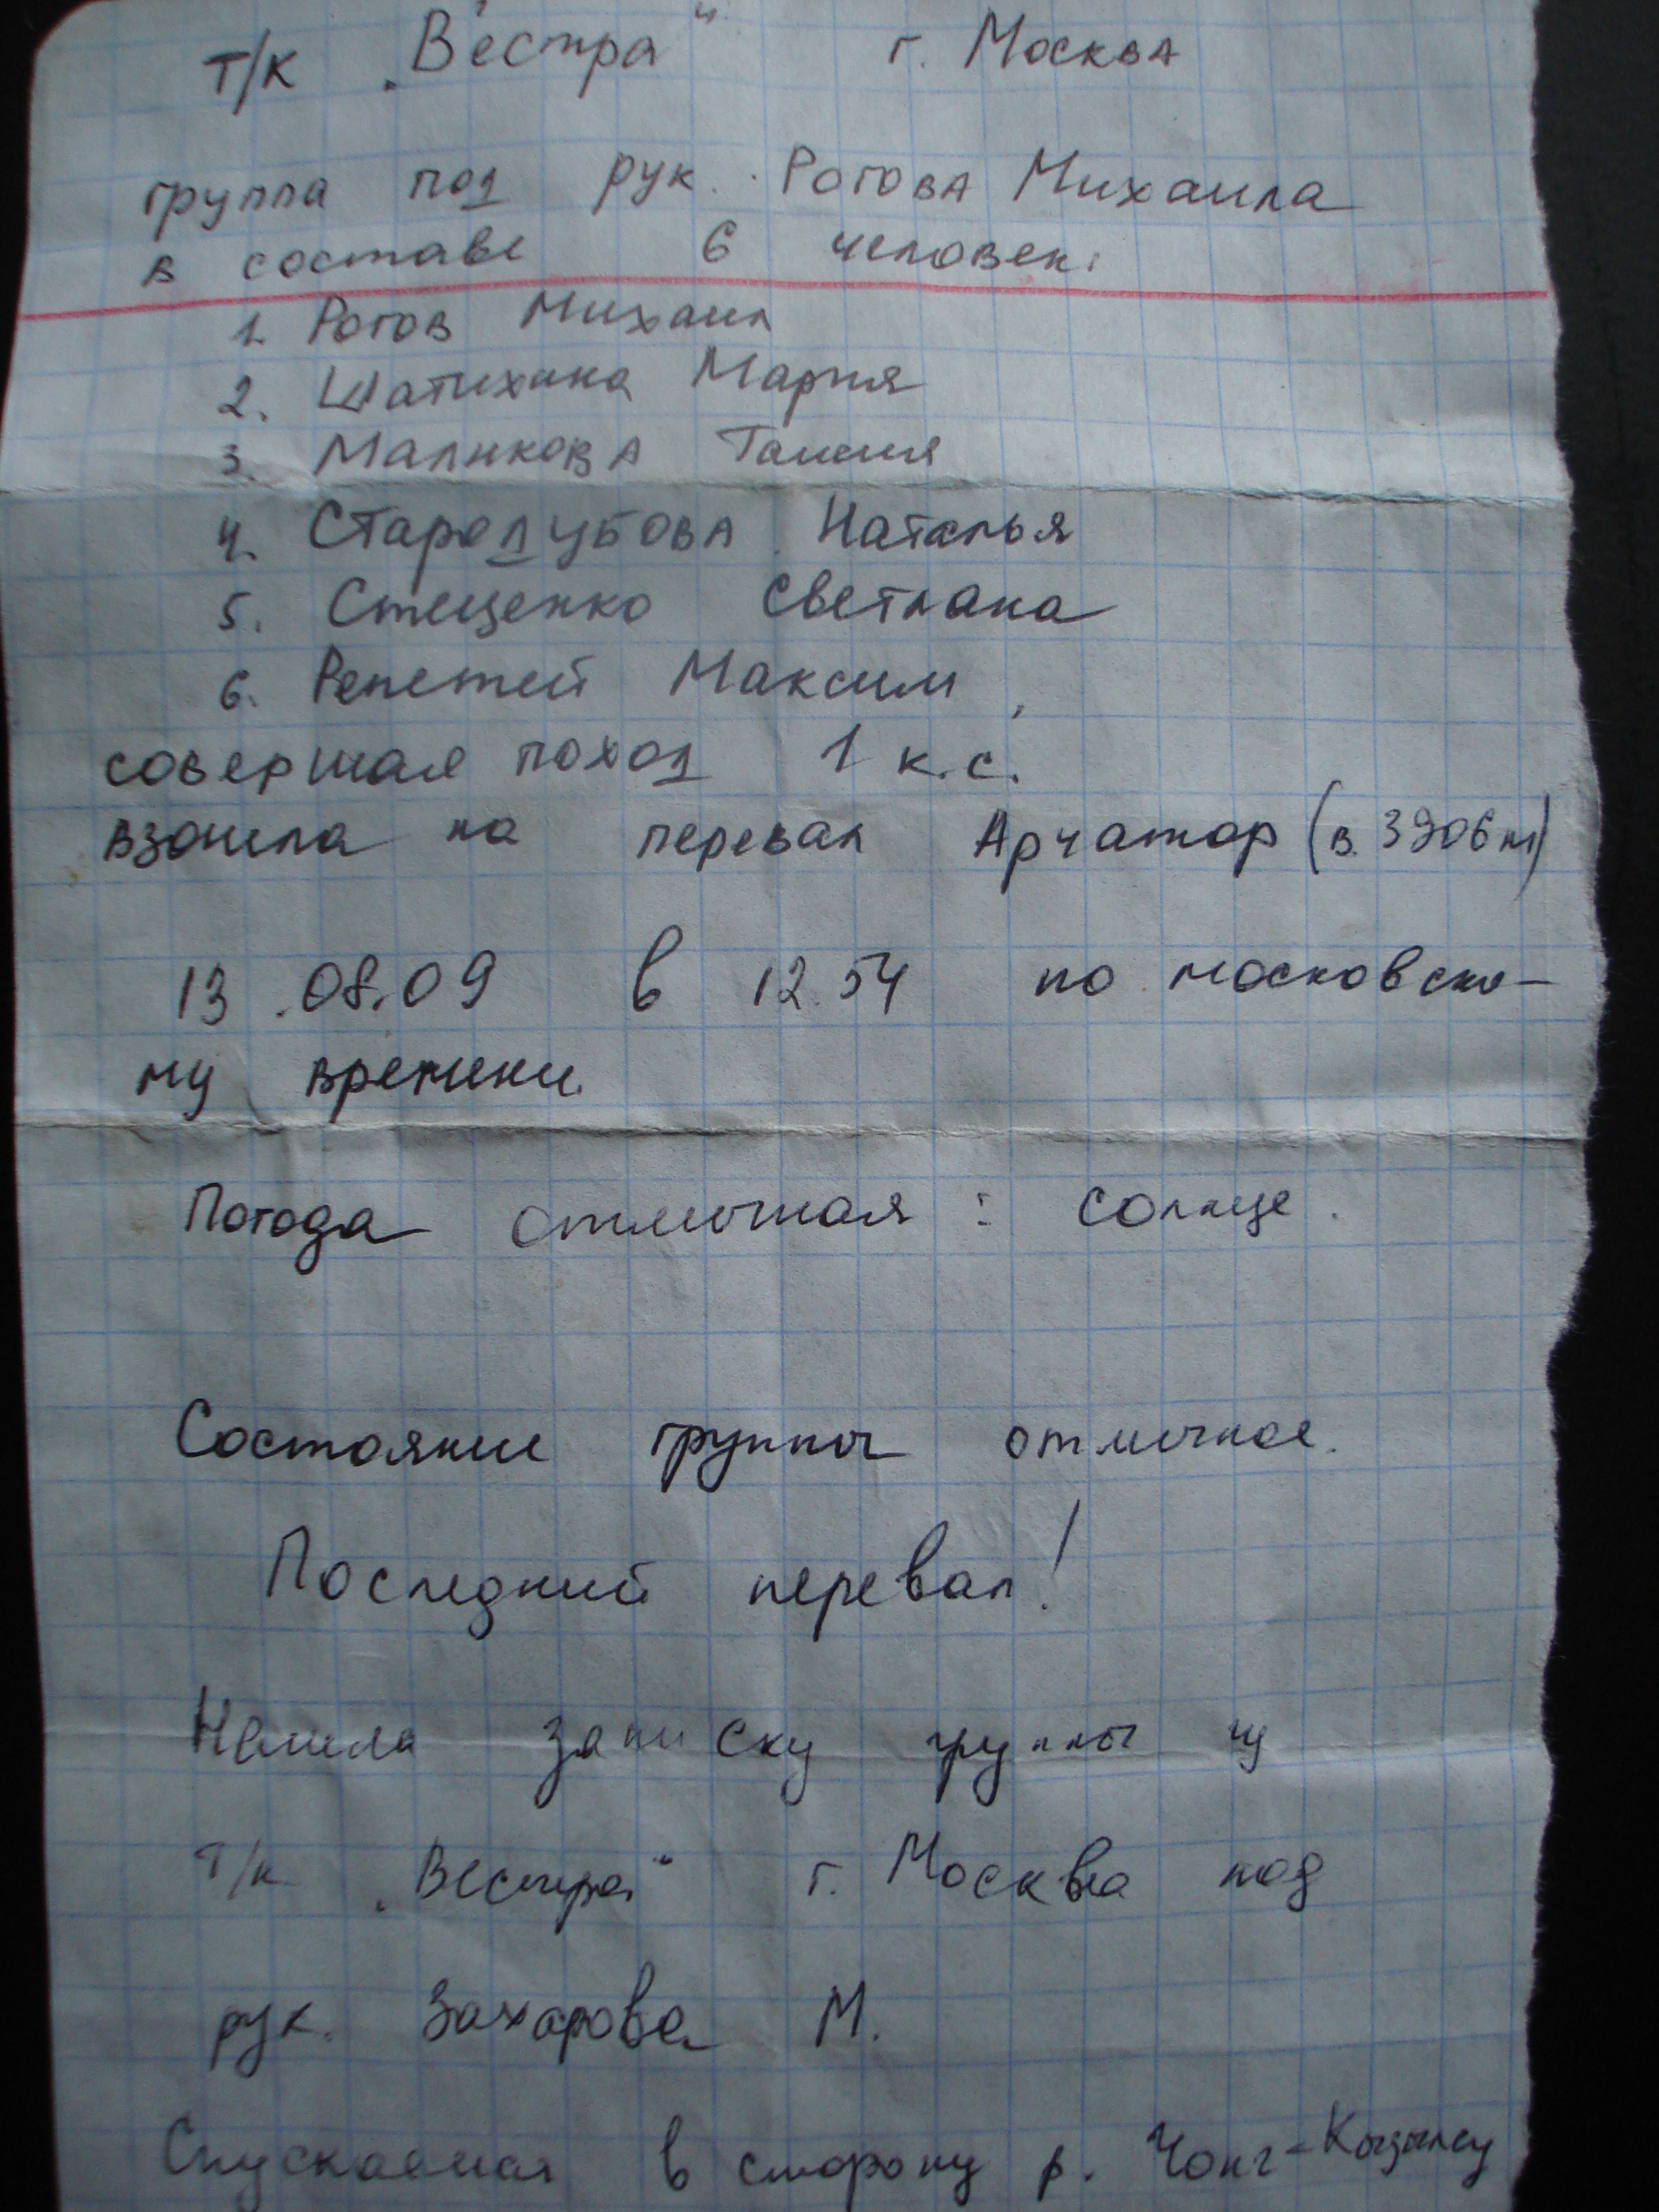 т/к „Вестра“ г. Москва
группа под рук. Рогова Михаила
в составе 6 человек:
1. Рогов Михаил
2. Шатихина Мария
3. Маликова Таисия
4. Стародубова Наталья
5. Стеценко Светлана
6. Репетей Максим,
совершая поход 1 к.с.
взошла на перевал Арчатор (в. 3906 м)
13.08.09 в 12.54 по московско-
му времени.
Погода отличная: солнце.
Состояние группы отличное.
Последний перевал!
Нашла записку группы
т/к „Вестра“ г. Москва под
рук. Захарова М.
Спускаемся в сторону р. Чонг-Кызылсу